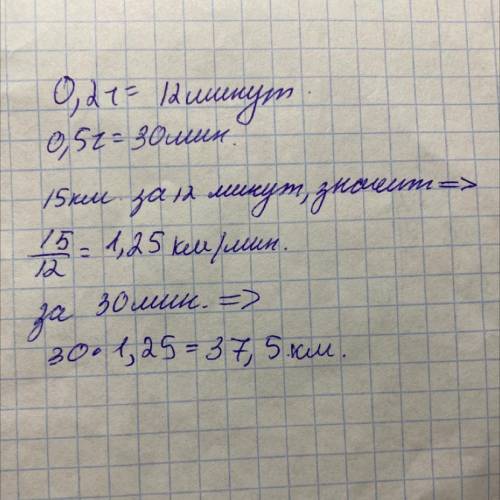 0,2ч = 12 минут.
0,5ч = 30 мин.
15 км за 12 минут, значит =>
15/12 = 1,25 км/мин.
за 30 мин. =>
30 • 1,25 = 37,5 км.